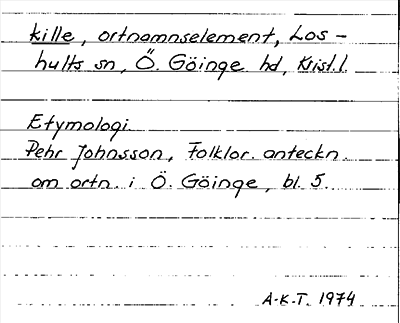 kille, ortnamnselement, Los-
hults sn, Ö. Göinge hd, Krist. l.
Etymologi.
Pehr Johnsson, Folklor. anteckn.
om ortn. i Ö. Göinge, bl. 5.
A-K.T. 1974